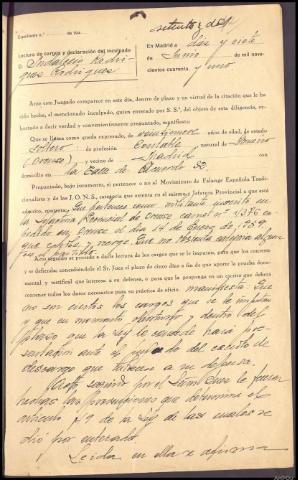 setenta y dos
Lectura de cargos y declaración del inculpado
D. Indalecio Rodri-
guez Rodriguez
En Madrid a diez y seis
de Junio de mil nove-
cientos cuarenta y uno
Ante este Juzgado comparece en este día, dentro de plazo y en virtud de la citación que le ha
sido hecha, el mencionado inculpado, quien enterado por S. Sª. del objeto de esta diligencia, ex-
hortado a decir verdad y convenientemente preguntado, manifiesta:
Que se llama como queda expresado, de veintinueve años de edad, de estado
soltero de profesión Contable natural de
(Orense) y vecino de Madrid
domiciliado en la calle de 50
Preguntado, bajo juramento, si pertenece o no al Movimiento de Falange Española Tradi-
cionalista y de las J. O. N. S., categoría que ostenta en el mismo y Jefatura Provincial a que esté
adscrito, manifiesta: Que pertenece como militante
la Jefatura Provincial de Orense carnet nº 1376 ex-
pedido en Orense el día 14 de Enero de 1939.
que exhibe y recoge. Que no ostenta categoría alguna
Acto seguido se procede a darle lectura de los cargos que se le imputan, para que los conteste
y se defienda, concediéndole el Sr. Juez el plazo de cinco días a fin de que aporte la prueba docu-
mental y testifical que interese a su defensa, o para que la proponga en un escrito que deberá
contener todos los datos necesarios para su práctica de oficio. manifiesta: Que
no son ciertos los cargos que se le imputan
y que en su momento oportuno y dentro del
plazo que la ley le concede hará pre-
sentación ante el juzgado del escrito de
descargo que interese a su defensa.
Acto seguido por el Señor Juez le fueron
leidas las prevenciones que determina el
articulo 49 de la ley de las cuales se
dió por enterado
Leida en ella se afirma